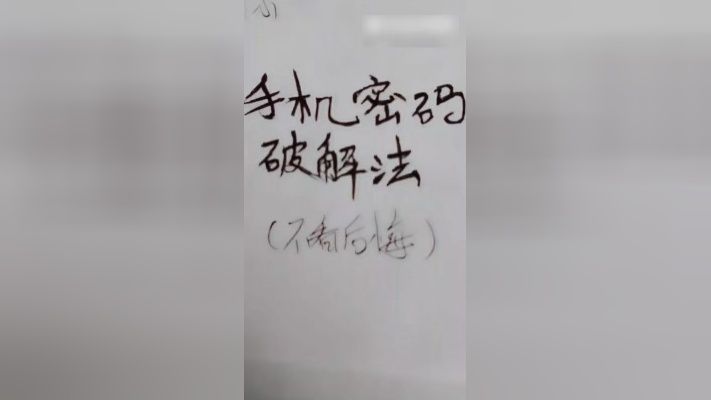 手机密码
破解法
(不看后悔)